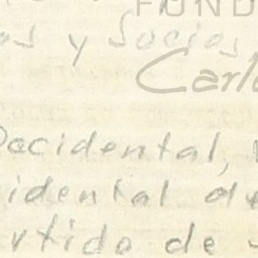 FUND
os y Socios
Carlo
Occidental,
idental de
rtido de